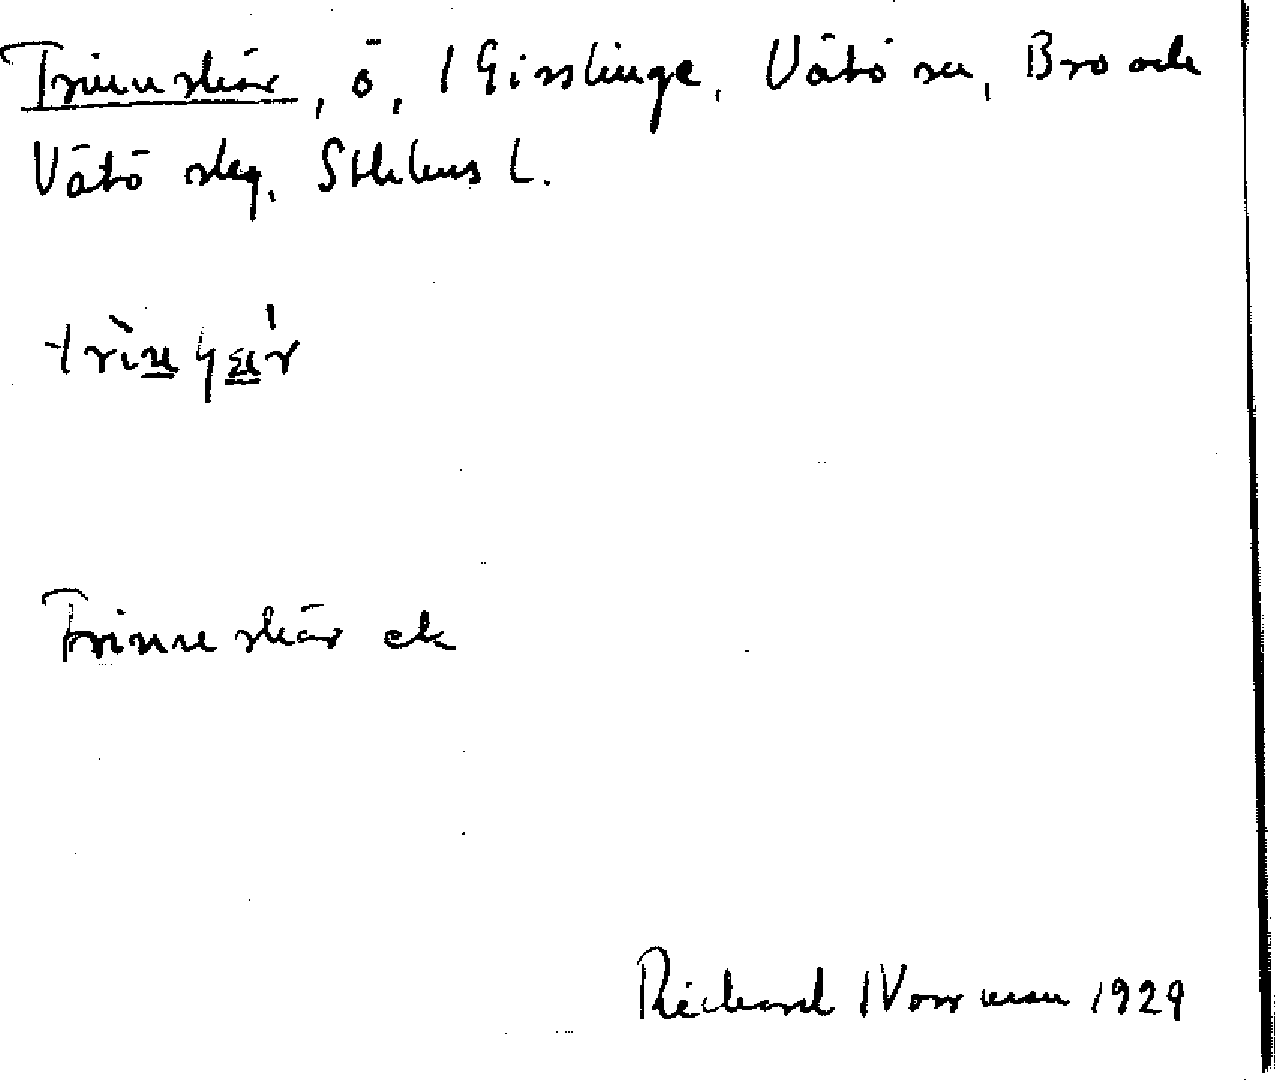 Trinneskär, ö, i Gisslinge, Vätö sn, Bro och
Vätö skg, Sthlms L.
Trinneskär ek
Richard Norrman 1929